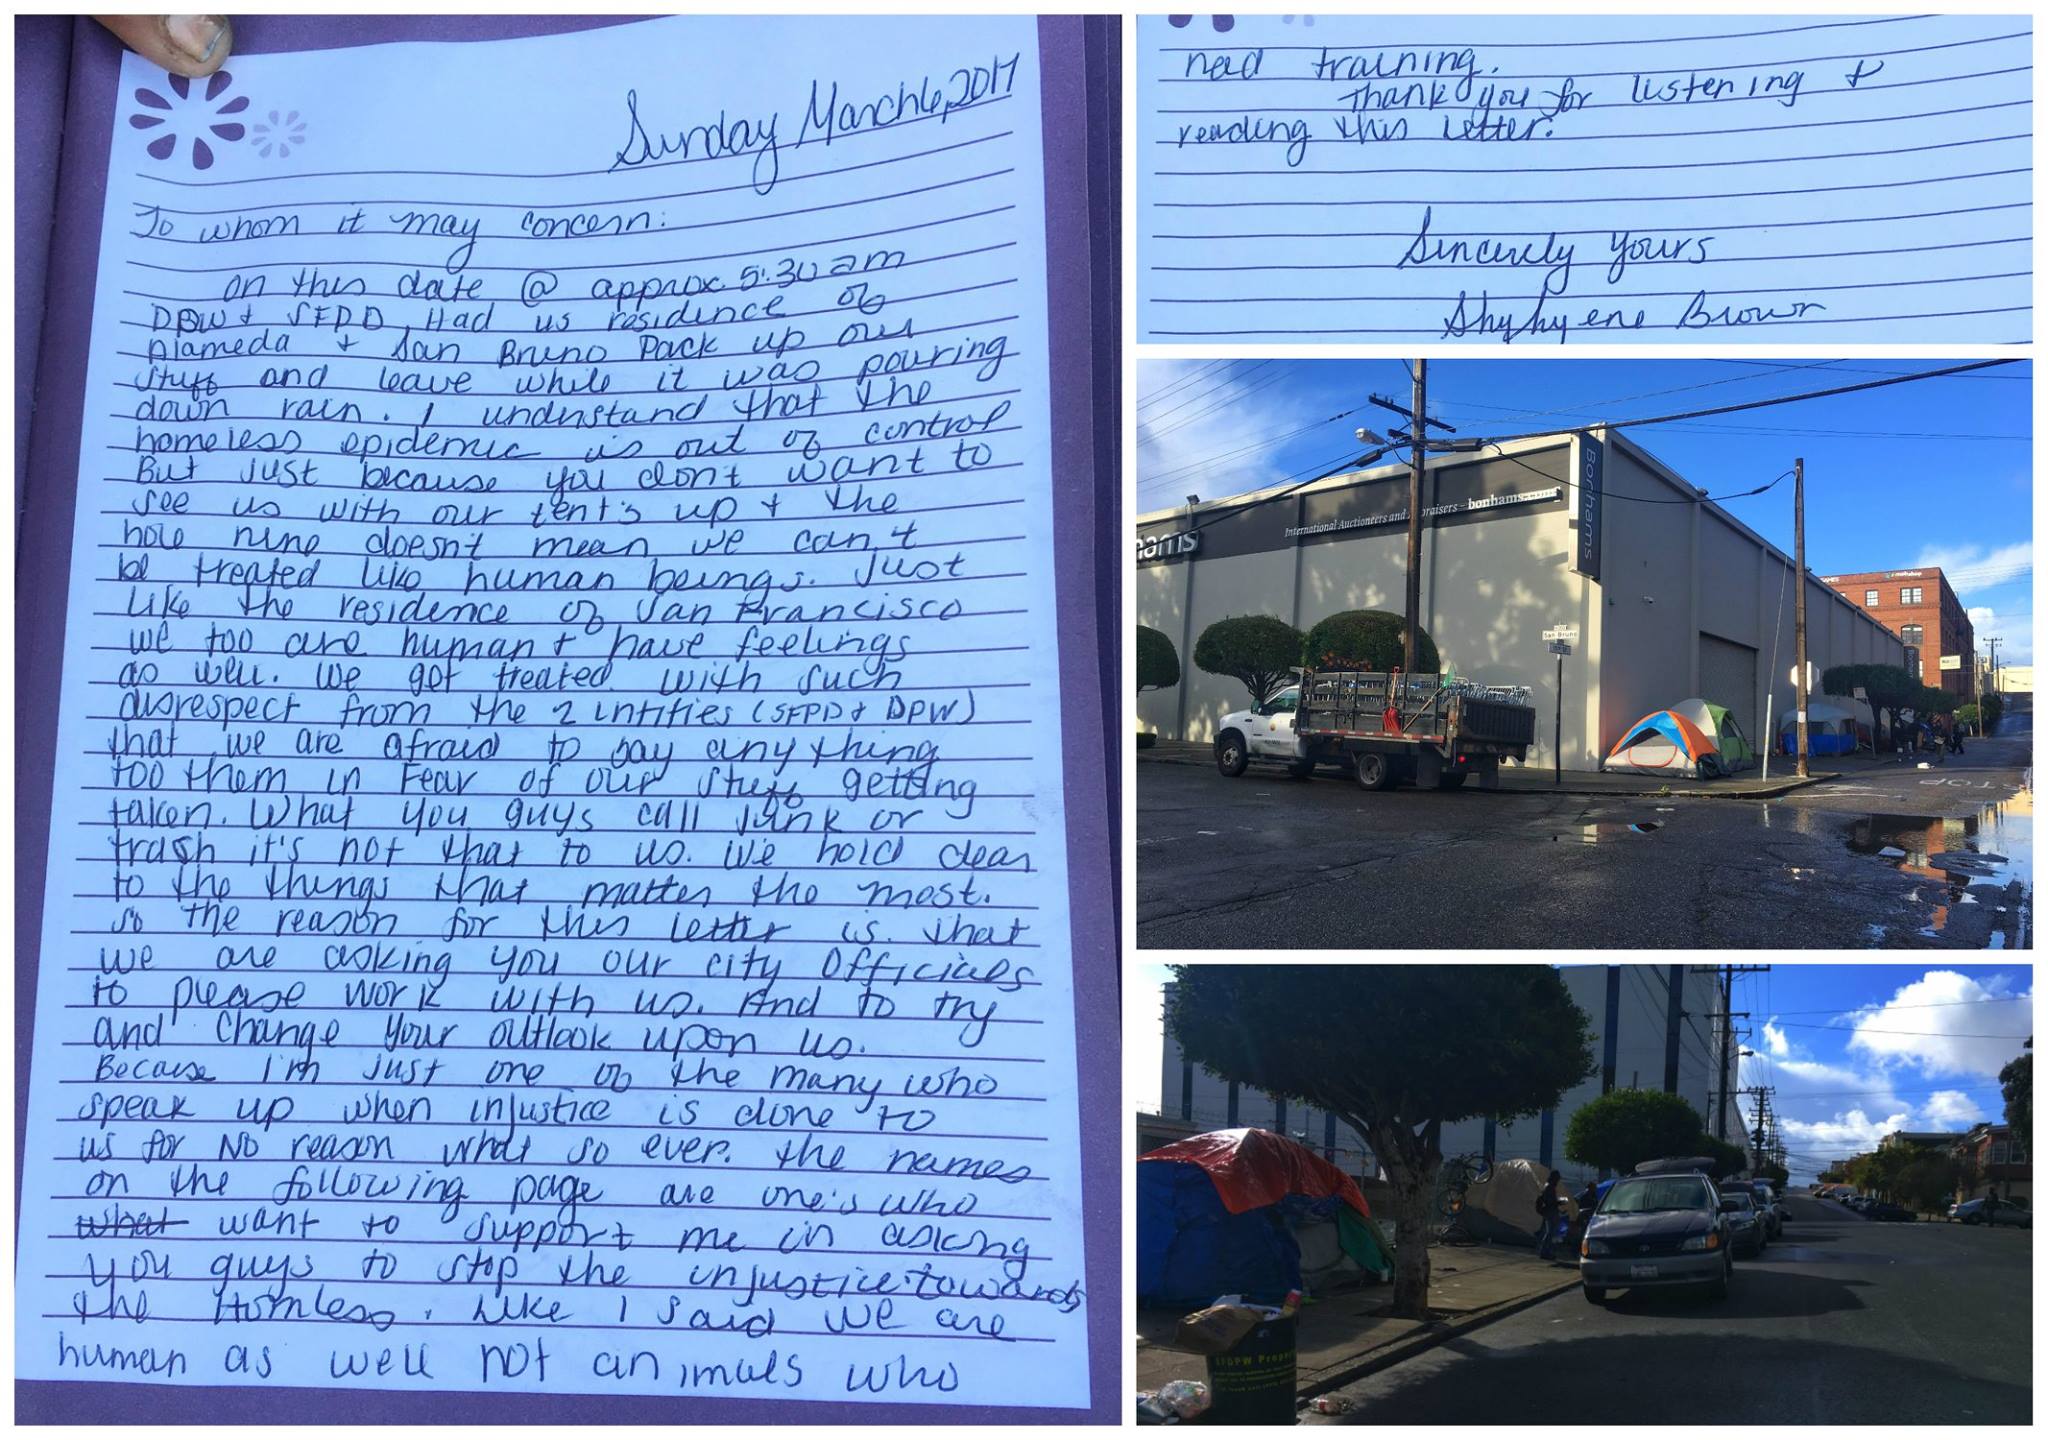 Sunday March 6, 2017
To whom it may concern:
on this date @ approx. 5:30 am
DPW & SFPD Had us residence of
Alameda & San Bruno Pack up our
stuff and leave while it was pouring
down rain. I understand that the
homeless epidemic is out of control
But just because you don't want to
see us with our tent's up & the
hole nine doesn't mean we can't
be treated like human beings. Just
like the residence of San Francisco
we too are human & have feelings
as well. We get treated with such
disrespect from the 2 intities (SFPD & DPW)
that we are afraid to say any thing
too them in Fear of our stuff getting
taken. What you guys call junk or
trash it's not that to us. We hold dear
to the things that matter the most.
so the reason for this letter is that
we are asking you our city officials
to please work with us. And to try
and change your outlook upon us.
Because I'm just one of the many who
speak up when injustice is done to
us for No reason what so ever. The names
on the following page are one's who
what want to support me in asking
you guys to stop the injustice towards
the Homless. Like I said we are
human as well not animals who
need training.
Thank you for listening &
reading this letter.
Sincerely Yours
Shyhyene Brown
Bonhams
hams
International Auctioneers and Appraisers – bonhams.com
San Bruno
TOP
SFDPW Prope